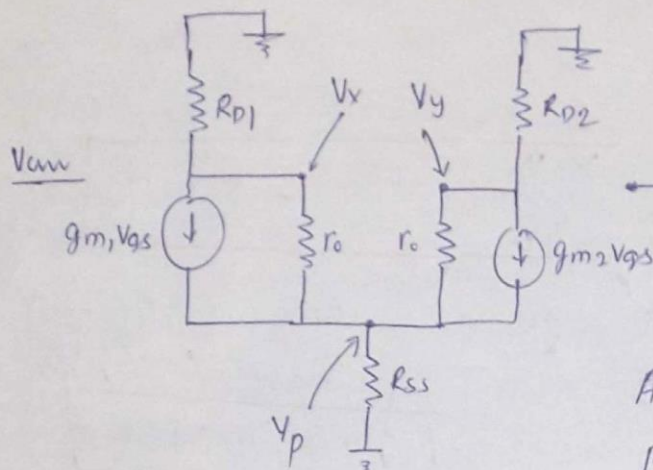 Vx
Vy
RD1
RD2
Vcm
gm1Vgs
ro
ro
gm2Vgs
Rss
Vp